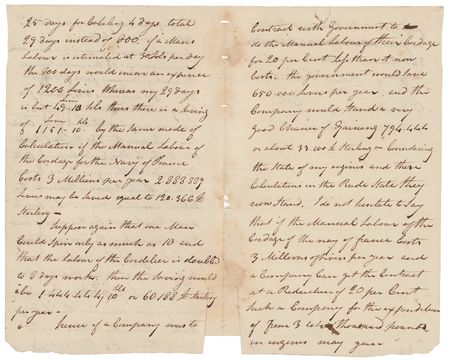 25 days for Cabeling 4 days total
29 days instead of 300, if a Mans
labour is estimated at 3 sols per day
the 300 days would incur an expence
of 1200 livres whereas my 29 days
is but thus there is a saving
of 1151 10 by the same mode of
Calculation if the Manual Labour of
the Cordage for the Navy of France
Costs 3 Millions per year 2.888.889
livres may be saved equal to 120.366 £
Sterling –
Suppose again that one Man
Could Spin only as much as 10 and
that the labour of the Cordelier is doubled
to 8 days work. then the Saving would
be 1.444.444 or 60.188 £ Sterling
per year –
hence if a Company was to
Contract with Government to
do the Manual Labour of their Cordage
for 20 per Cent less than it now
Costs. the government would save
650000 livres per year. and the
Company would Stand a very
good Chance of Gaining 794.444
or about 33.100 £ Sterling – Considering
the State of my engines and these
Calculations in the Rude State they
now Stand. I do not hesitate to Say
that if the Manual Labour of the
Cordage of the navy of france Costs
3 Millions of livres per year and
a Company Can get the Contract
at a Reduction of 20 per Cent
Such a Company for the expenditure
of from 3 to 4 thousand pounds
in engines may gain